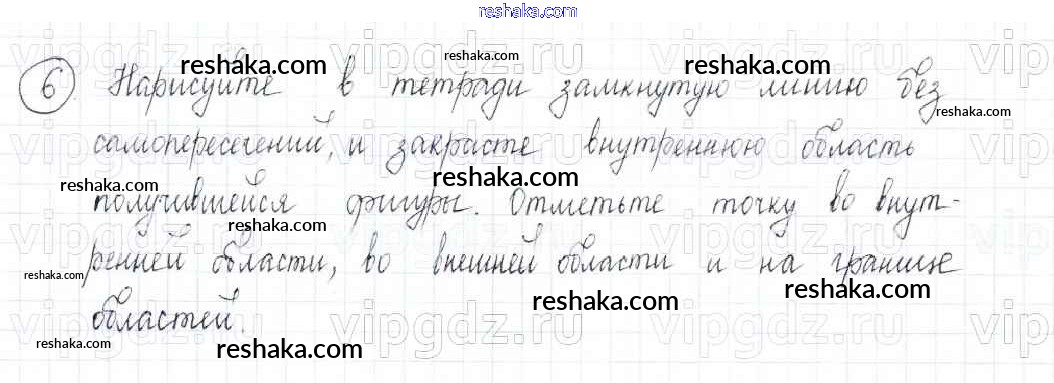 reshaka.com
vipgdz.ru vipgdz.ru vipgdz.ru vipgdz
reshaka.com reshaka.com reshaka.com
6 Нарисуйте в тетради замкнутую линию без
reshaka.com
самопересечений, и закрасте внутреннюю область
vipgdz.ru vipgdz.ru vipgdz.ru vipgdz
reshaka.com reshaka.com
получившейся фигуры. Отметьте точку во внут-
reshaka.com
vipgdz.ru vipgdz.ru vipgdz.ru vipgdz
ренней области, во внешней области и на границе
reshaka.com reshaka.com reshaka.com
областей.
vipgdz.ru vipgdz.ru vipgdz.ru vipgdz
reshaka.com reshaka.com